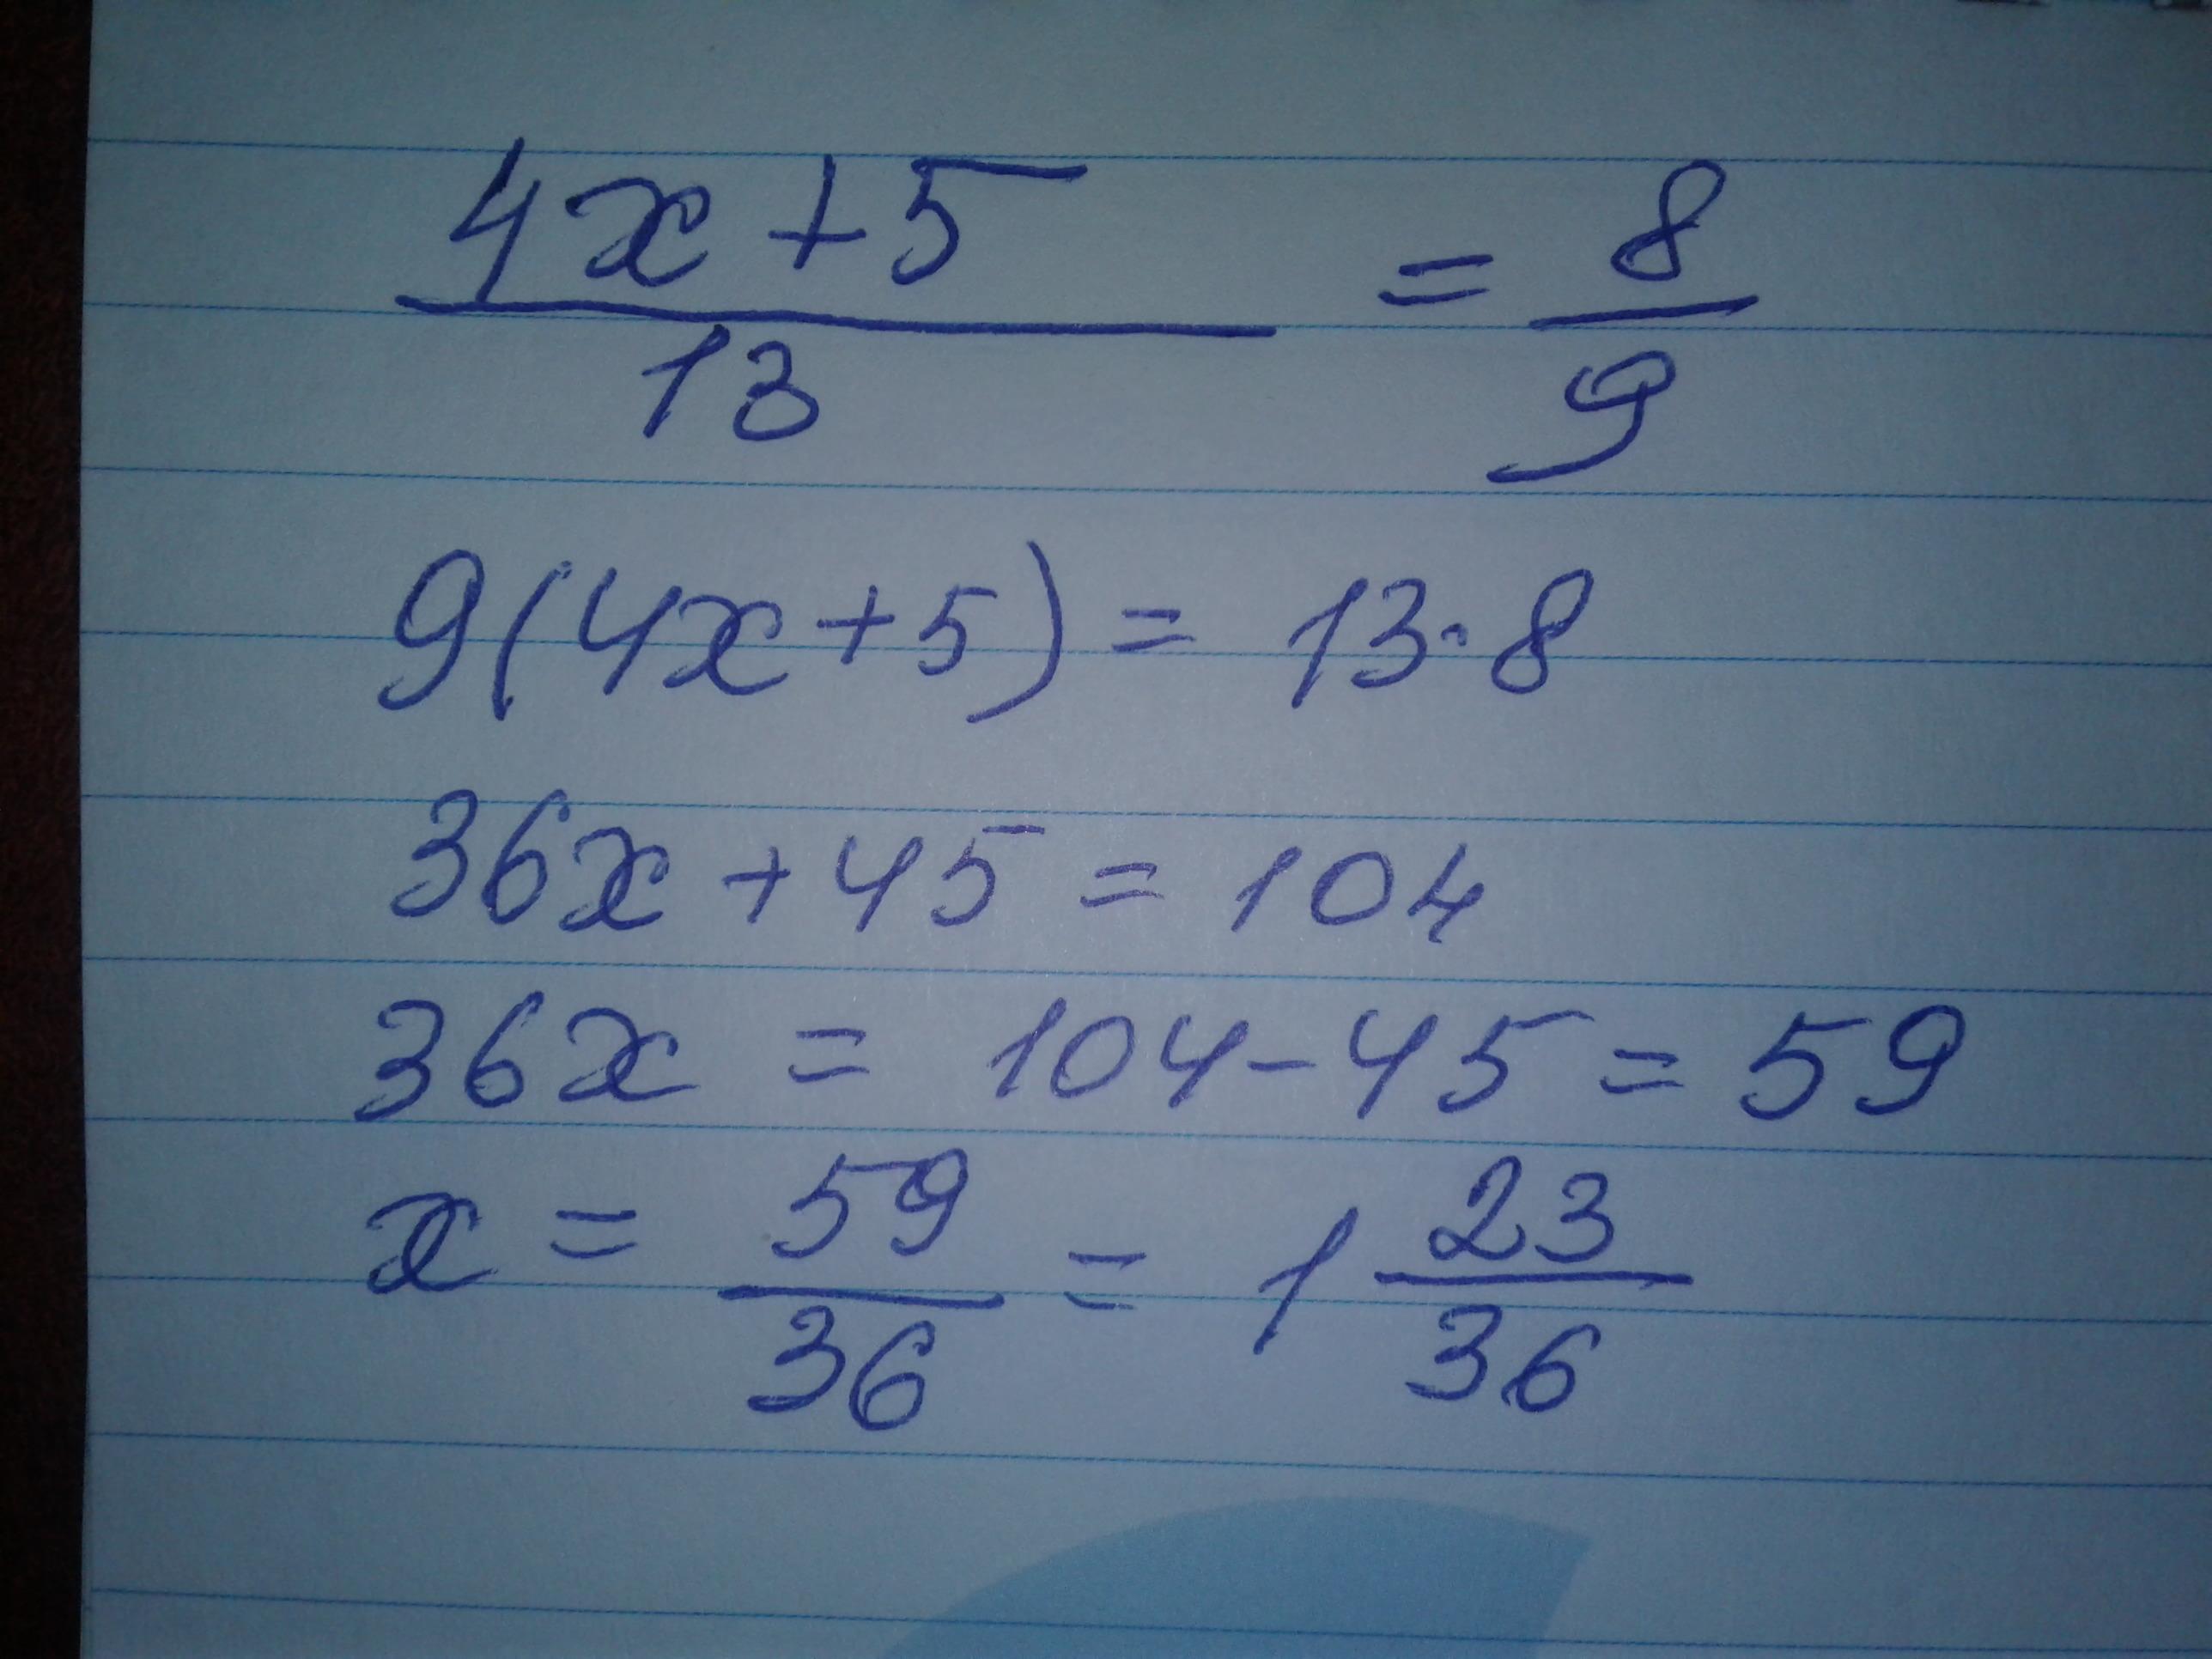 (4x+5)/13 = 8/9
9(4x+5) = 13·8
36x + 45 = 104
36x = 104-45 = 59
x = 59/36 = 1 23/36